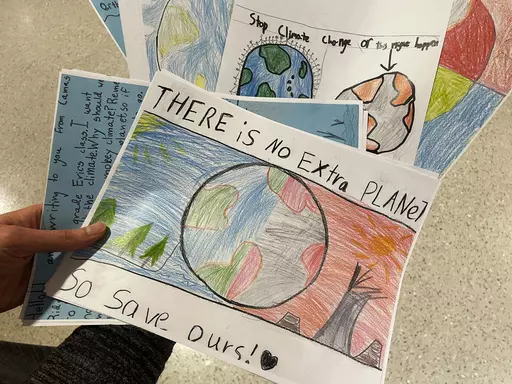 THERE is NO EXtra PLANET
SO Save ours!
Stop Climate Change or this might happen
Hello! I am writing to you from Camas
grade Erics class. I want
the climate. Why should we
monkey climate? Reme
planet, so if